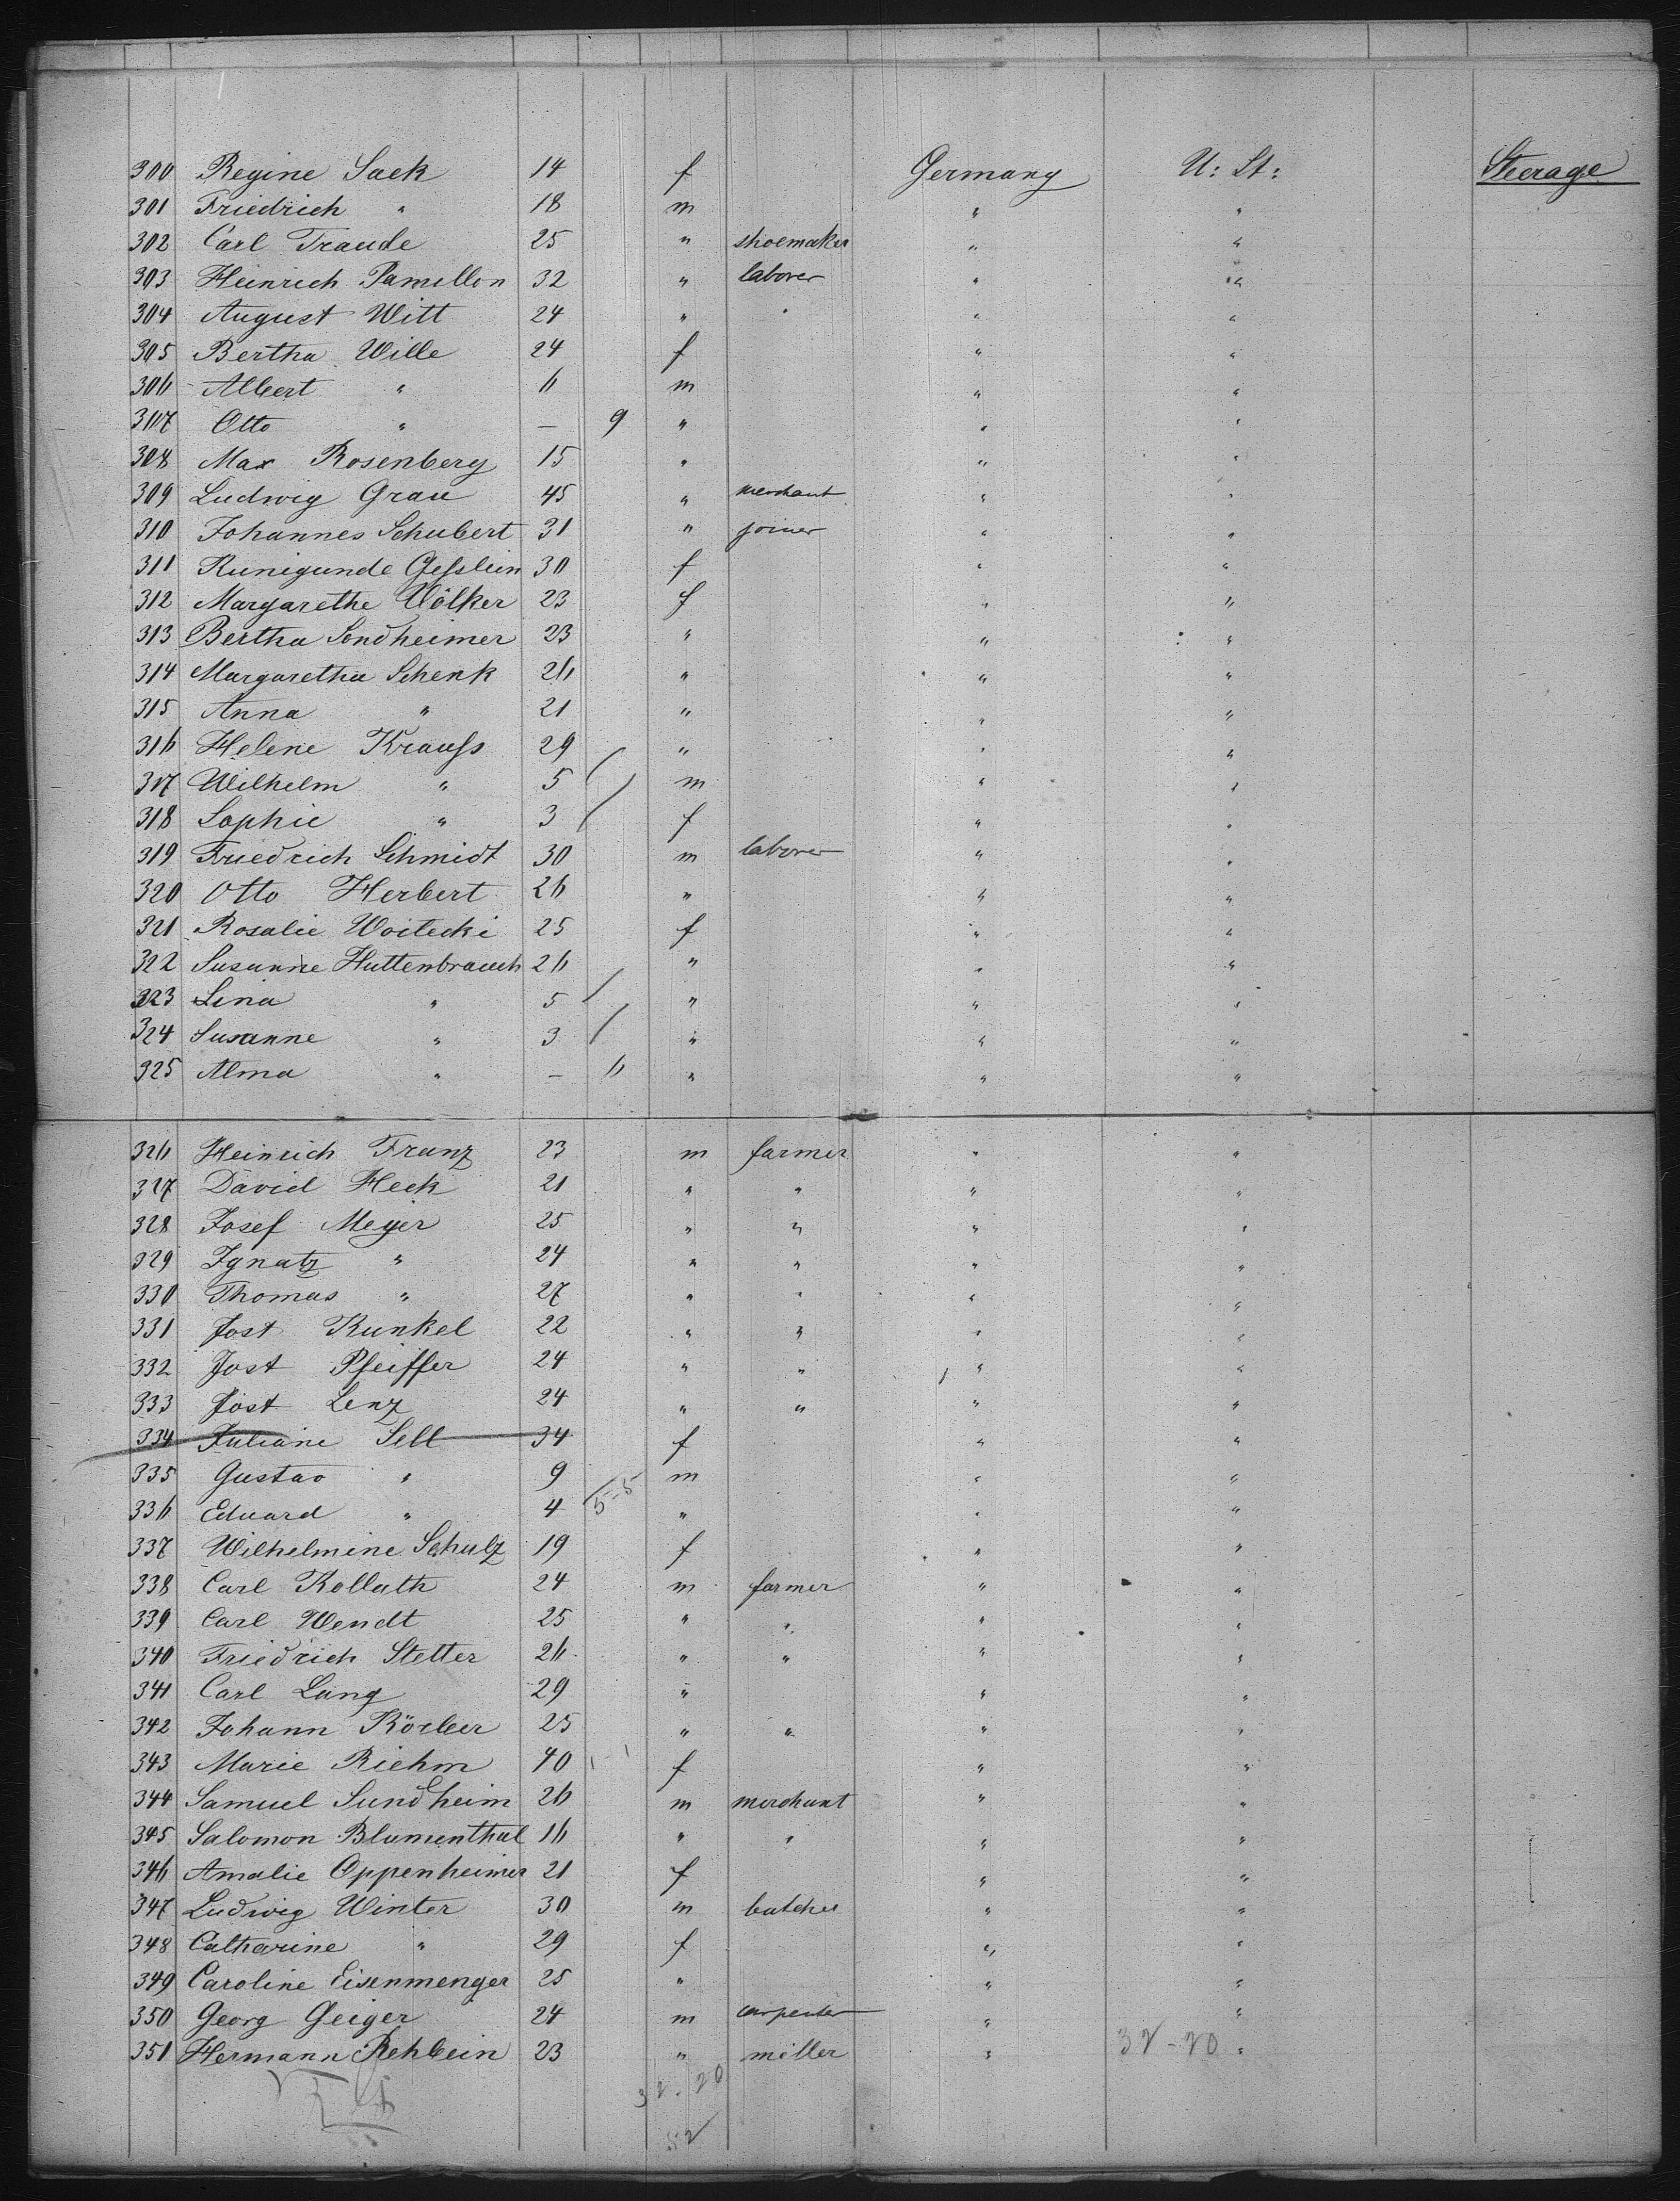 300 Regine Sack 14 f Germany U: St: Steerage
301 Friedrich " 18 m " "
302 Carl Traude 25 " shoemaker " "
303 Heinrich Pamillon 32 " laborer " "
304 August Witt 24 " " " "
305 Bertha Wille 24 f " "
306 Albert " 6 m " "
307 Otto " — 9 " " "
308 Max Rosenberg 15 " " "
309 Ludwig Grau 45 " merchant " "
310 Johannes Schubert 31 " joiner " "
311 Kunigunde Gesslein 30 f " "
312 Margarethe Völker 23 f " "
313 Bertha Sondheimer 23 " " "
314 Margaretha Schenk 26 " " "
315 Anna " 21 " " "
316 Helene Krauss 29 " " "
317 Wilhelm " 5 m " "
318 Sophie " 3 f " "
319 Friedrich Schmidt 30 m laborer " "
320 Otto Herbert 26 " " "
321 Rosalie Woitecki 25 f " "
322 Susanne Huttenbrauch 26 " " "
323 Lina " 5 " " "
324 Susanne " 3 " " "
325 Alma " — 6 " " "
326 Heinrich Franz 23 m farmer " "
327 David Heck 21 " " " "
328 Josef Meyer 25 " " " "
329 Ignatz " 24 " " " "
330 Thomas " 27 " " " "
331 Jost Kunkel 22 " " " "
332 Jost Pfeiffer 24 " " " "
333 Jost Lenz 24 " " " "
334 Juliane Sell 34 f " "
335 Gustav " 9 m " "
336 Eduard " 4 5-5 " " "
337 Wilhelmine Schulz 19 f " "
338 Carl Kollath 24 m farmer " "
339 Carl Wendt 25 " " " "
340 Friedrich Stetter 26 " " " "
341 Carl Lang 29 " " "
342 Johann Körber 25 " " " "
343 Marie Riehm 40 f " "
344 Samuel Sundheim 26 m merchant " "
345 Salomon Blumenthal 16 " " " "
346 Amalie Oppenheimer 21 f " "
347 Ludwig Winter 30 m butcher " "
348 Catharine " 29 f " "
349 Caroline Eisenmenger 25 " " "
350 Georg Geiger 24 m carpenter " "
351 Hermann Rehbein 23 " miller " 32-20 "
32. 20
52